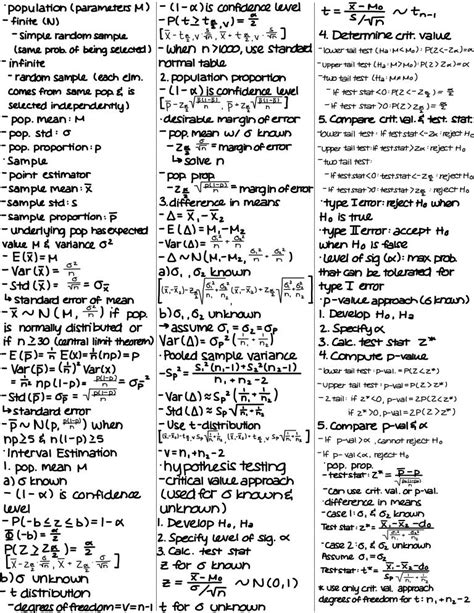 · population (parameters M)
- finite (N)
- simple random sample
(same prob. of being selected)
- infinite
- random sample (each elm.
comes from same pop. & is
selected independently)
- pop. mean: M
- pop. std: σ
- pop. proportion: p
· Sample
- point estimator
- sample mean: x̄
- sample std: s
- sample proportion: p̄
- underlying pop has expected
value M & variance σ²
- E(x̄) = M
- Var(x̄) = σ²/n
- Std(x̄) = σ/√n = σx̄
↳ standard error of mean
- x̄ ~ N(M, σ²/n) if pop.
is normally distributed or
if n ≥ 30 (central limit theorem)
- E(p̄) = 1/n E(x) = 1/n (np) = p
- Var(p̄) = (1/n)² Var(x)
= 1/n² np(1-p) = p(1-p)/n = σp̄²
- Std(p̄) = σp̄ = √p(1-p)/n
↳ standard error
- p̄ ~ N(p, p(1-p)/n) when
np ≥ 5 & n(1-p) ≥ 5
· Interval Estimation
1. pop. mean M
a) σ known
- (1-α) is confidence
level
- P(-b ≤ z ≤ b) = 1-α
Φ(-b) = α/2
P(Z ≥ zα/2) = α/2
[x̄ - zα/2 σ/√n, x̄ + zα/2 σ/√n]
b) σ unknown
- t distribution
- degrees of freedom = v = n-1
- (1-α) is confidence level
- P(t ≥ tα/2,v) = α/2
[x̄ - tα/2,v s/√n, x̄ + tα/2,v s/√n]
- when n > 1000, use standard
normal table
2. population proportion
- (1-α) is confidence level
[p̄ - zα/2 √p̄(1-p̄)/n, p̄ + zα/2 √p̄(1-p̄)/n]
· desirable margin of error
- pop. mean w/ σ known
- zα/2 σ/√n = margin of error
↳ solve n
- pop prop.
- zα/2 √p(1-p)/n = margin of error
3. difference in means
- Δ = x̄₁ - x̄₂
- E(Δ) = M₁ - M₂
- Var(Δ) = σ₁²/n₁ + σ₂²/n₂
- Δ ~ N(M₁-M₂, σ₁²/n₁ + σ₂²/n₂)
a) σ₁, σ₂ known
[(x̄₁-x̄₂) - zα/2 √σ₁²/n₁ + σ₂²/n₂, (x̄₁-x̄₂) + zα/2 √σ₁²/n₁ + σ₂²/n₂]
b) σ₁, σ₂ unknown
→ assume σ₁ = σ₂ = σp
Var(Δ) = σp² (1/n₁ + 1/n₂)
· Pooled sample variance
- Sp² = s₁²(n₁-1) + s₂²(n₂-1) / n₁ + n₂ - 2
- Var(Δ) ≈ Sp² (1/n₁ + 1/n₂)
- Std(Δ) ≈ Sp √1/n₁ + 1/n₂
- Use t-distribution
[(x̄₁-x̄₂) - tα/2,v Sp √1/n₁ + 1/n₂, (x̄₁-x̄₂) + tα/2,v Sp √1/n₁ + 1/n₂]
- v = n₁ + n₂ - 2
· hypothesis testing
- critical value approach
(used for σ known &
unknown)
1. Develop H₀, Ha
2. Specify level of sig. α
3. Calc. test stat
z = x̄ - M₀ / σ/√n ~ N(0,1)
t for σ unknown
t = x̄ - M₀ / s/√n ~ tn-1
4. Determine crit. value
- lower tail test (Ha: M<M₀): P(Z<-Zα) = α
- upper tail test (Ha: M>M₀): P(Z>Zα) = α
- two tail test (Ha: M≠M₀)
- if test stat <0: P(Z<-Zα/2) = α/2
- if test stat >0: P(Z>Zα/2) = α/2
5. Compare crit val. & test. stat.
- lower tail test: if test stat <-Zα: reject H₀
- upper tail test: if test stat >Zα: reject H₀
- two tail test:
- if test stat <0: test stat <-Zα/2: reject H₀
- if test stat >0: test stat >Zα/2: reject H₀
· type I error: reject H₀ when
H₀ is true
· type II error: accept H₀
when H₀ is false
· level of sig (α): max prob.
that can be tolerated for
type I error
· p-value approach (σ known)
1. Develop H₀, Ha
2. Specify α
3. Calc. test stat z*
4. Compute p-value
- lower tail test: p-val. = P(Z<z*)
- upper tail test: p-val = P(Z>z*)
- 2 tail: if z*<0, p-val = 2P(Z<z*)
if z*>0, p-val = 2P(Z>z*)
5. Compare p-val & α
- if p-val >α, cannot reject H₀
- if p-val <α, reject H₀
· pop. prop.
- test stat: z* = p̄ - p / √p(1-p)/n
- can use crit. val. or p-val.
· difference in means
- case 1: σ₁ & σ₂ known
Test stat: z* = x̄₁ - x̄₂ - d₀ / √σ₁²/n₁ + σ₂²/n₂
- case 2: σ₁ & σ₂ unknown
Assume σ₁ = σ₂
Test stat: t* = x̄₁ - x̄₂ - d₀ / Sp √1/n₁ + 1/n₂
* use only crit. val. approach
degrees of freedom for t: n₁ + n₂ - 2